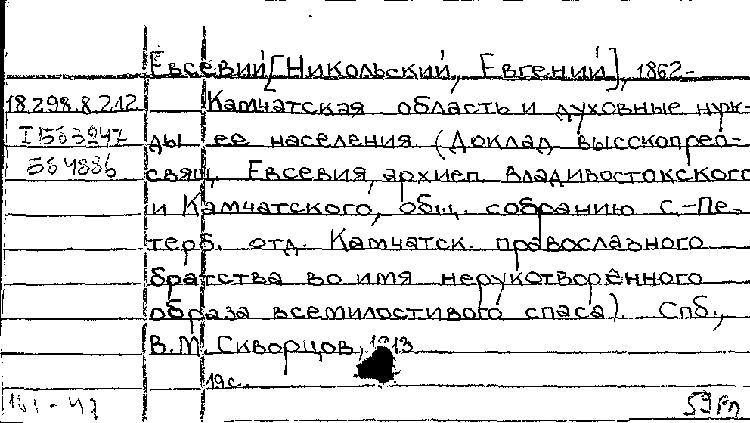 Евсевий [Никольский, Евгений], 1862-
18.298.8.212 Камчатская область и духовные нуж-
I 563247 ды ее населения (Доклад высокопрео-
564886 свящ. Евсевия, архиеп. Владивостокского
и Камчатского, общ. собранию С.-Пе-
терб. отд. Камчатск. православного
братства во имя нерукотворенного
образа всемилостивого спаса). Спб.,
В.М. Скворцов, 1913
19 с.
161-47 59 Рп